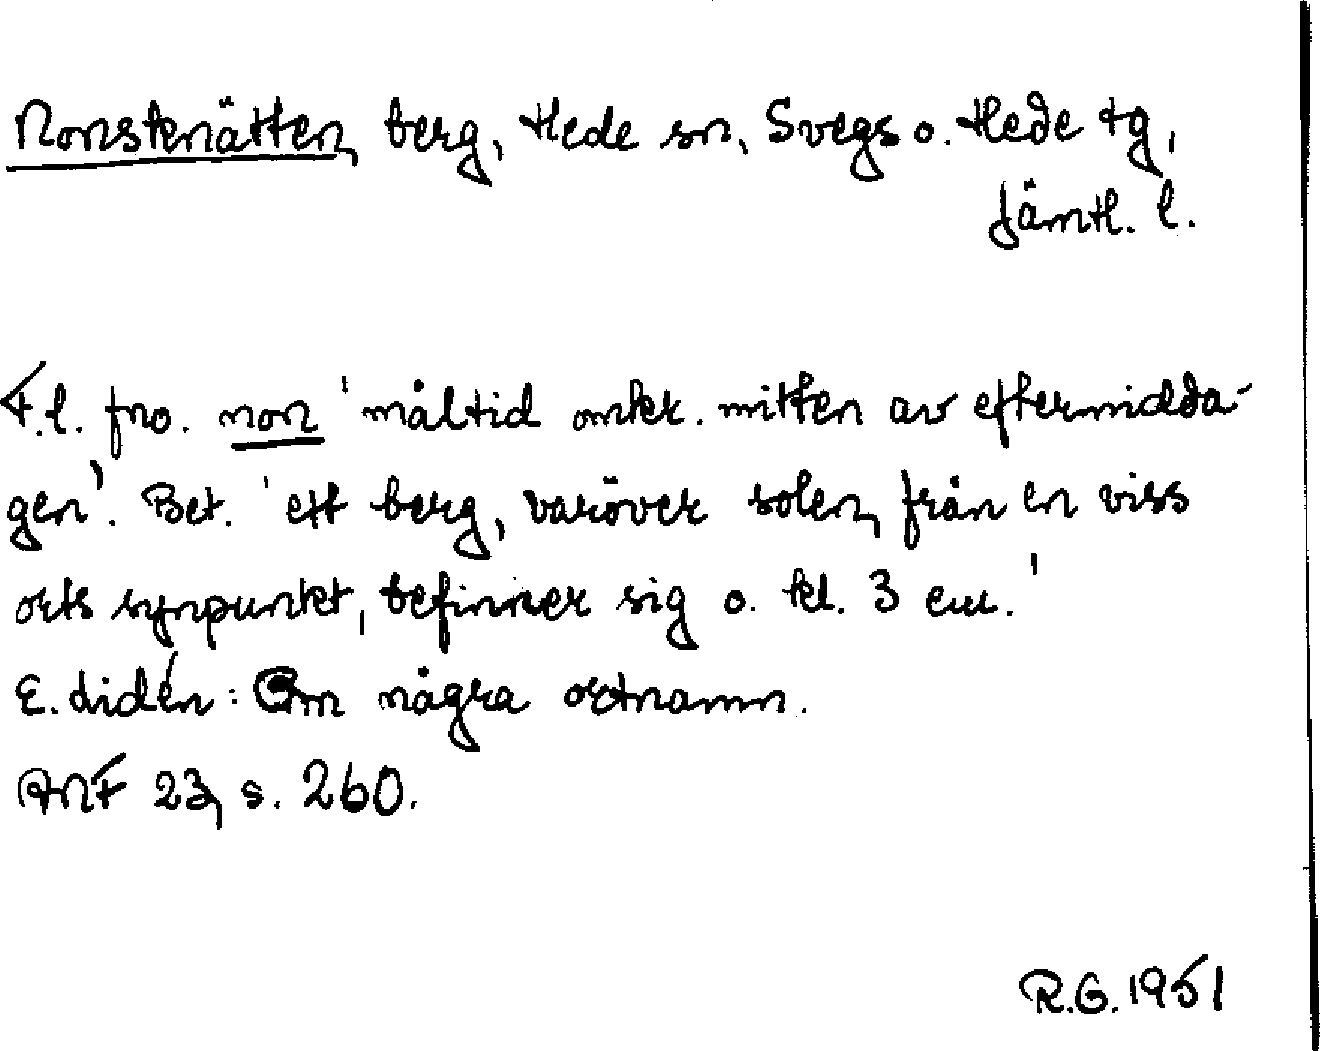 Nonsknätten, berg, Hede sn, Svegs o. Hede tg,
Jämtl. l.
F.l. fno. non 'måltid omkr. mitten av eftermidda-
gen'. Bet. 'ett berg, varöver solen, från en viss
orts synpunkt, befinner sig o. kl. 3 em.'
E. Lidén: Om några ortnamn.
ANF 23, s. 260.
R.G. 1951